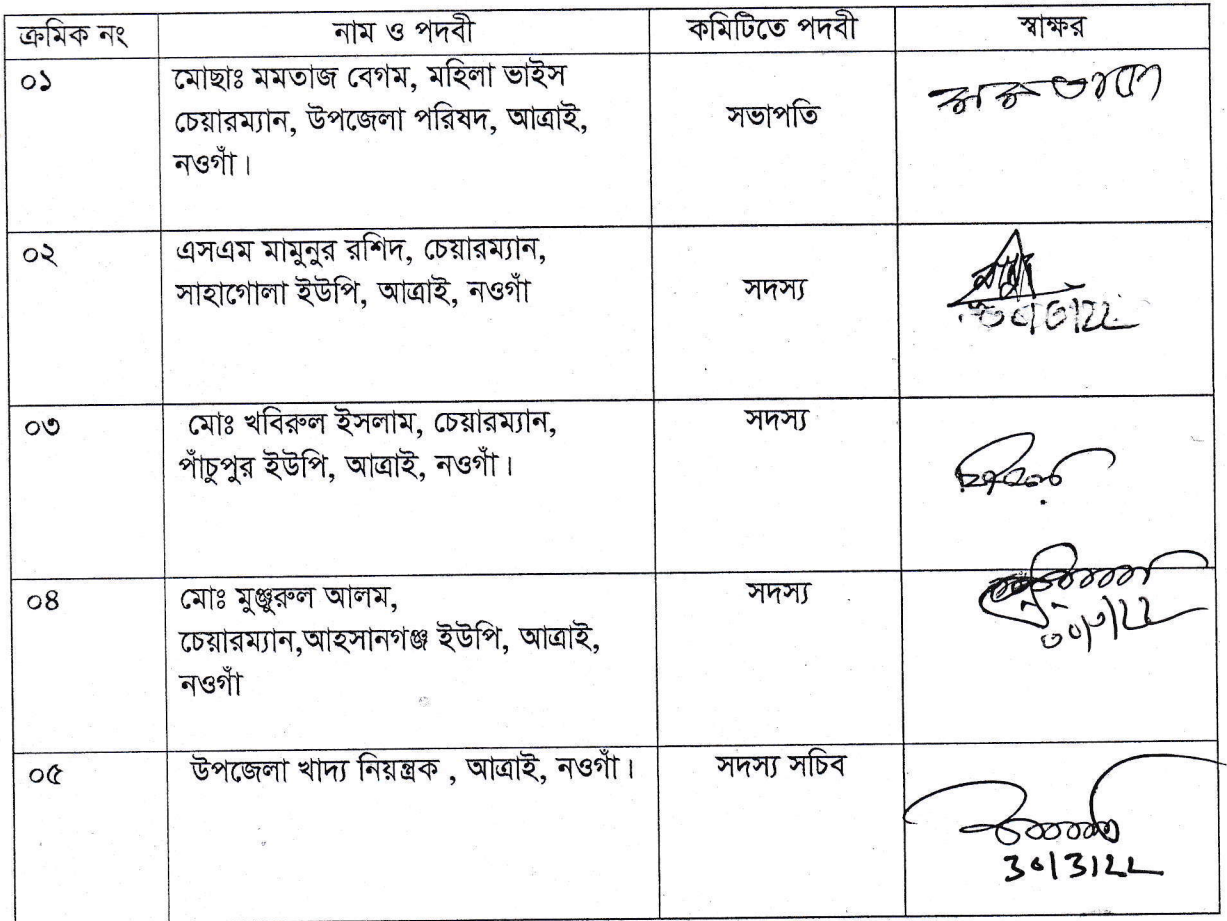 ক্রমিক নং নাম ও পদবী কমিটিতে পদবী স্বাক্ষর
০১ মোছাঃ মমতাজ বেগম, মহিলা ভাইস
চেয়ারম্যান, উপজেলা পরিষদ, আত্রাই, সভাপতি
নওগাঁ।
০২ এসএম মামুনুর রশিদ, চেয়ারম্যান,
সাহাগোলা ইউপি, আত্রাই, নওগাঁ সদস্য
০৩ মোঃ খবিরুল ইসলাম, চেয়ারম্যান, সদস্য
পাঁচুপুর ইউপি, আত্রাই, নওগাঁ।
০৪ মোঃ মুঞ্জুরুল আলম, সদস্য
চেয়ারম্যান,আহসানগঞ্জ ইউপি, আত্রাই,
নওগাঁ
০৫ উপজেলা খাদ্য নিয়ন্ত্রক , আত্রাই, নওগাঁ। সদস্য সচিব
30/3/22